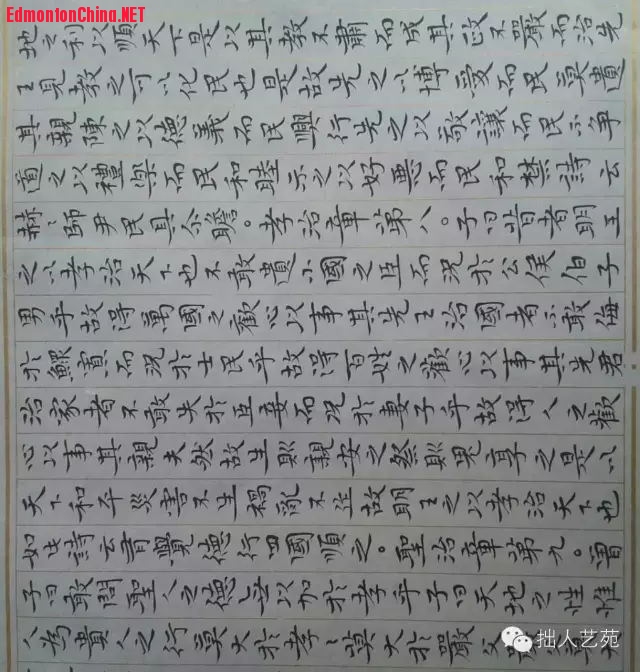 EdmontonChina.NET
地之利以順天下是以其教不肅而成其政不嚴而治先
王見教之可以化民也是故先之以博愛而民莫遺
其親陳之以德義而民興行先之以敬讓而民不爭
道之以禮樂而民和睦示之以好惡而民知禁詩云
赫〻師尹民具尒瞻。孝治章第八。子曰昔者明王
之以孝治天下也不敢遺小國之臣而況於公侯伯子
男乎故得萬國之歡心以事其先王治國者不敢侮
於鰥寡而況於士民乎故得百姓之歡心以事其先君
治家者不敢失於臣妾而況於妻子乎故得人之歡
心以事其親夫然故生則親安之祭則鬼享之是以
天下和平災害不生禍亂不作故明王之以孝治天下也
如此詩云有覺德行四國順之。聖治章第九。曾
子曰敢問聖人之德無以加於孝乎子曰天地之性惟
人為貴人之行莫大於孝〻莫大於嚴父
拙人艺苑